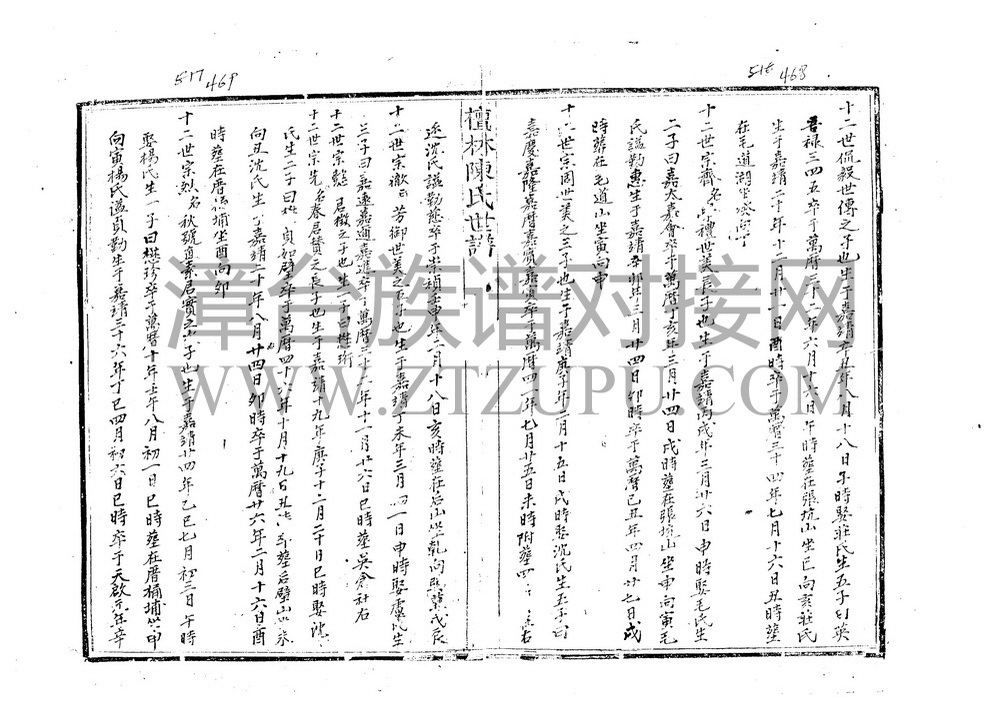 518 468
517 469
十二世侃毅世傳之子也生于嘉靖五年八月十八日午時娶莊氏生五子曰英
三四五卒于萬曆三十二年六月十六日午時塟在張坑山坐巳向亥莊氏
生于嘉靖二十年十二月廿一日酉時卒于萬曆三十四年七月十六日丑時塟
在毛道湖坐癸向丁
十二世宗齊名禮世美長子也生于嘉靖丙戌年三月廿六日申時娶毛氏生
二子曰嘉大嘉會卒于萬曆丁亥年三月廿四日戌時塟在張坑山坐申向寅毛
氏謚勤惠生于嘉靖辛卯年三月廿四日卯時卒于萬曆己丑年四月廿七日戌
時塟在毛道山坐寅向申
十二世宗周世美之三子也生于嘉靖庚子年二月十五日戌時娶沈氏生五子曰
嘉慶嘉隆嘉曆嘉賓嘉 卒于萬曆四十一年七月廿五日未時附塟 右
檀林陳氏世譜
沈氏謚勤慈卒于崇禎壬申年二月十八日亥時塟在后山坐乾向巽 戊辰
十二世宗徹 若御世美之 子也生于嘉靖丁未年三月初一日申時娶盧氏生
三子曰嘉遠嘉適嘉進卒于萬曆三十 年十一月廿六日巳時塟吳倉社右
十二世宗 君 之子也生一子曰懋珩
十二世宗先 春君賛之長子也生于嘉靖十九年庚子十二月二十日巳時娶陳
氏生二子曰 貞 卒于萬曆四十六年十月十九日丑 塟后壁山坐癸
向丑沈氏生于嘉靖二十年八月廿四日卯時卒于萬曆廿六年二月十六日酉
時塟在厝桶埔坐酉向卯
十二世宗烈名秋號直素君實之 子也生于嘉靖廿四年乙巳七月初三日午時
娶楊氏生一子曰懋珍卒于萬曆十年壬午八月初一日巳時塟在厝桶埔坐申
向寅楊氏謚貞勤生于嘉靖三十六年丁巳四月初六日巳時卒于天啟元年辛
漳台族谱对接网
WWW.ZTZUPU.COM